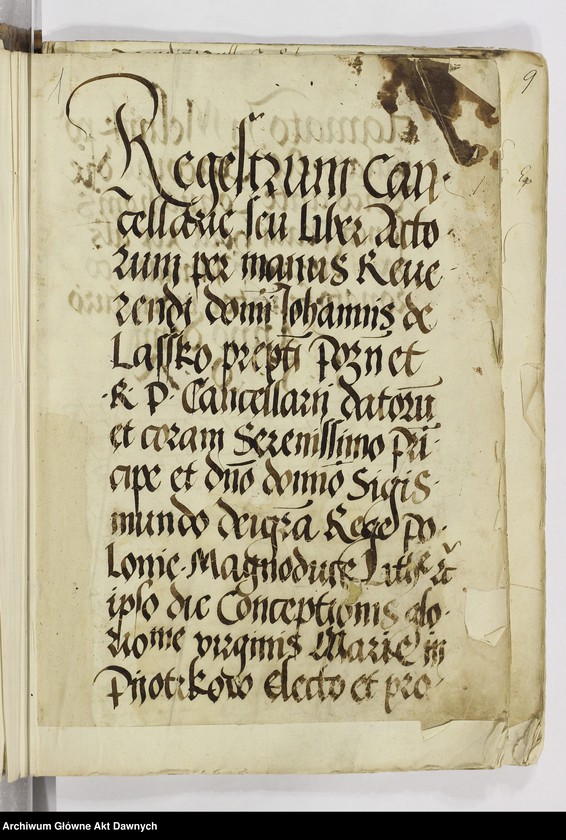 1
9
Regestrum Can-
cellarie seu Liber Acto-
rum per manus Reve-
rendi domi Johannis de
Lassko prepti pozn et
R P Cancellarij datoru
et coram Serenissimo pri-
cipe et dno domno Sigis-
mundo dei gra Rege po-
lonie Magnoduce Lith
ipso die Conceptionis glo-
virginis Marie in
Pijotrkow Electo et pro-
Archiwum Główne Akt Dawnych